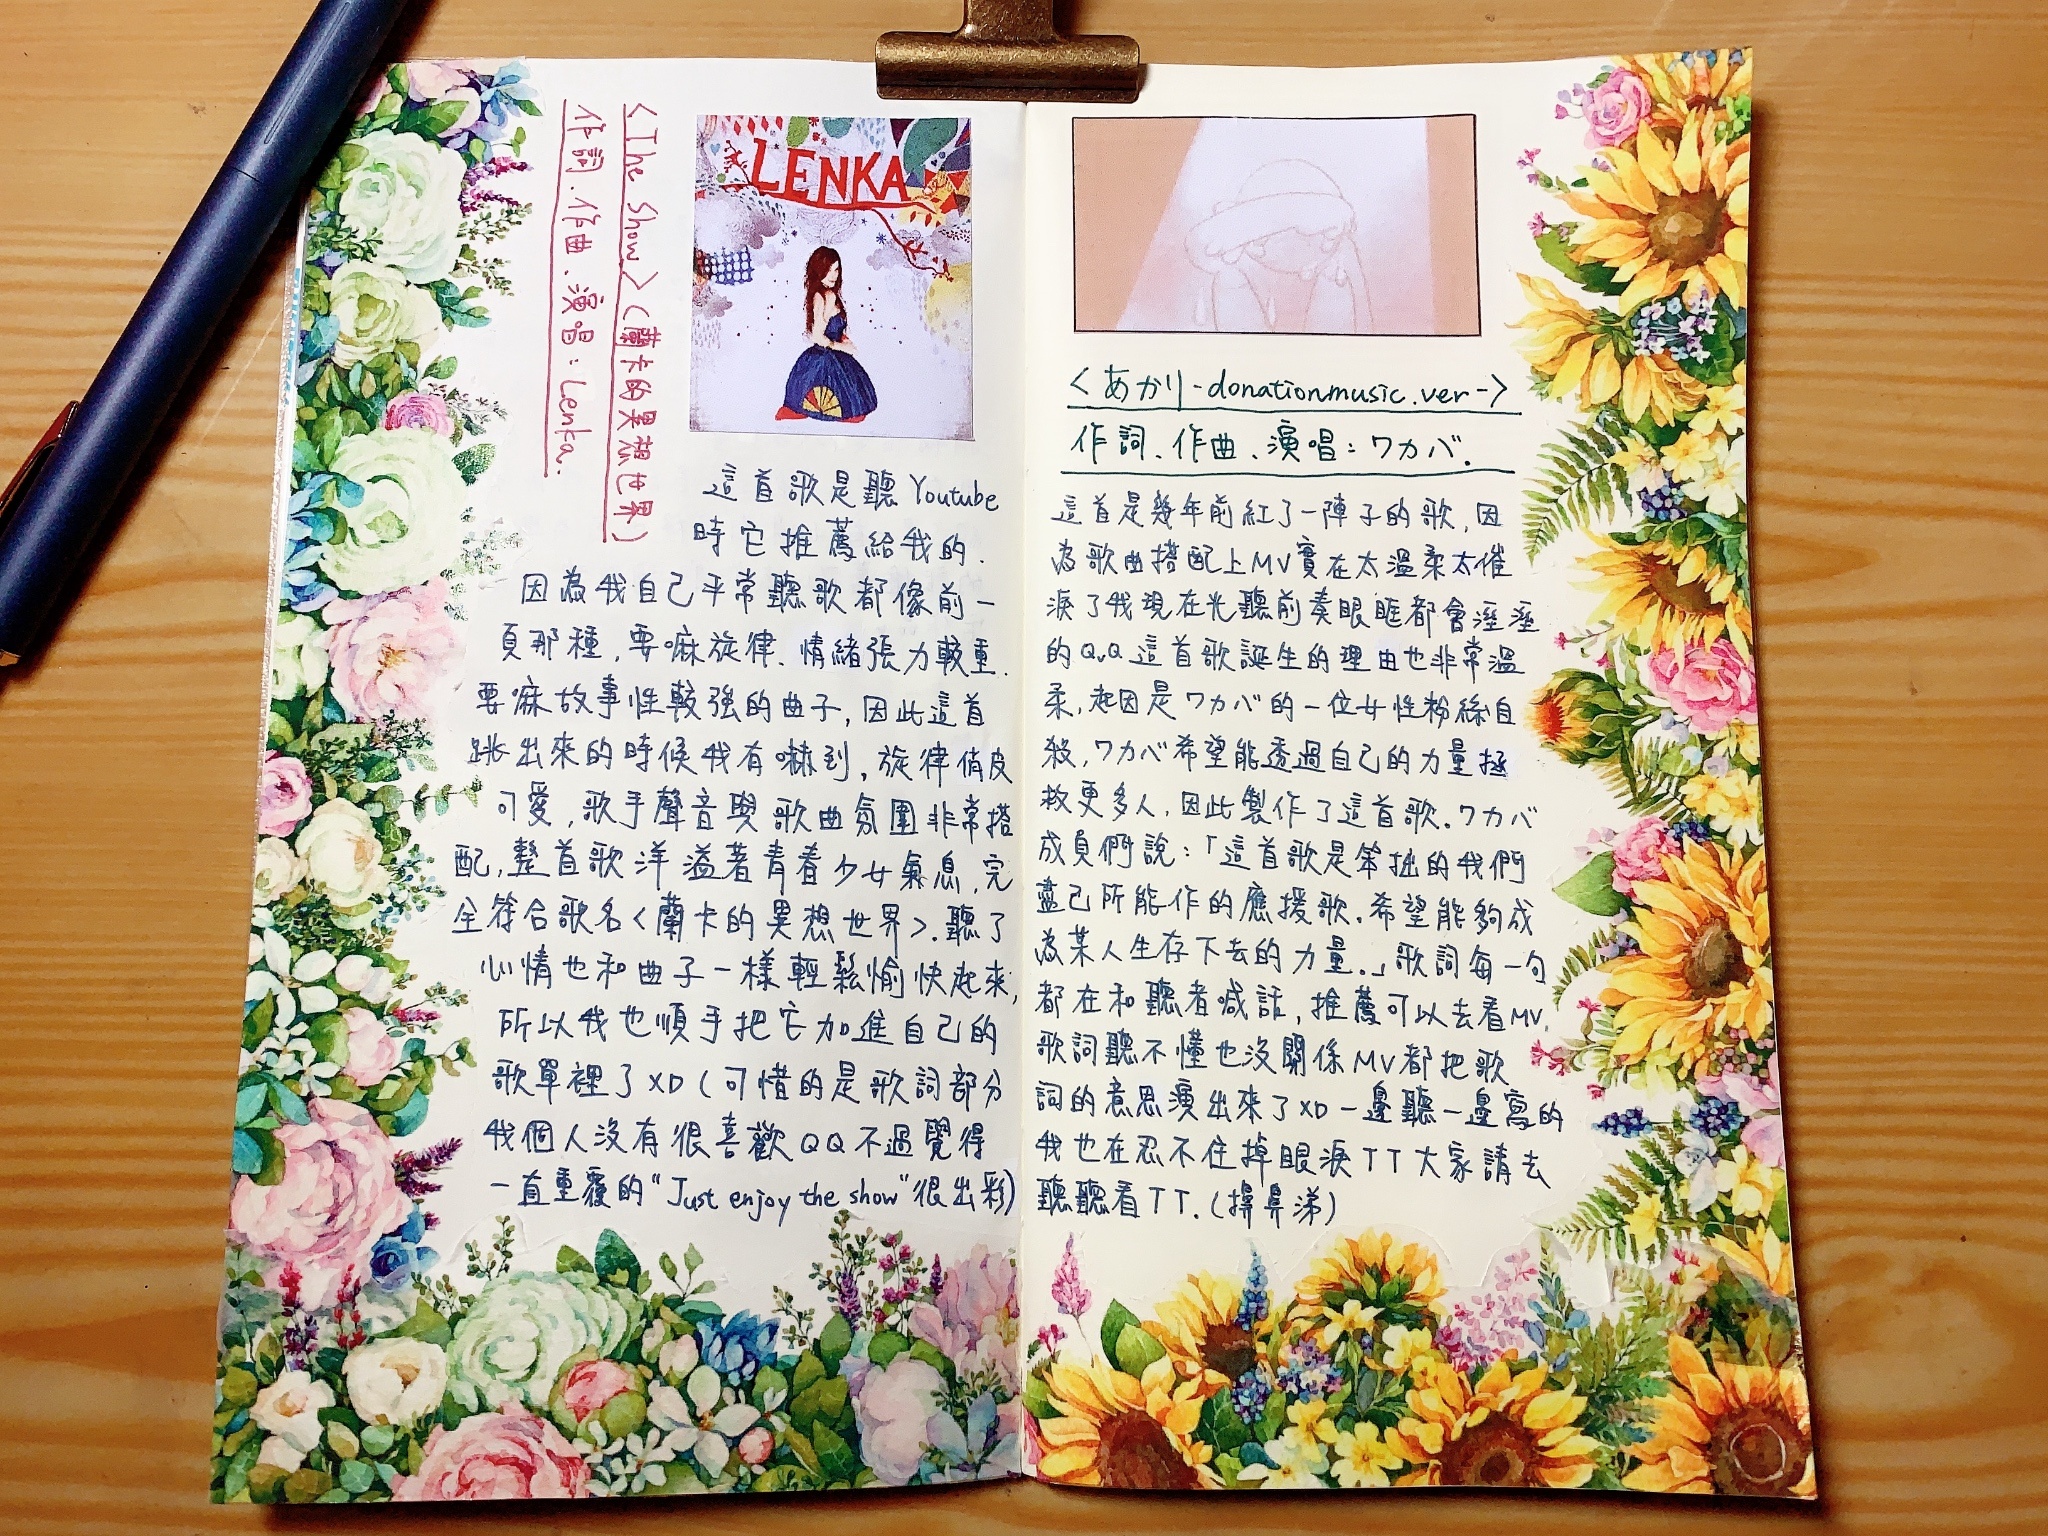 <The Show>(蘭卡的異想世界)
作詞.作曲.演唱:Lenka.
LENKA
這首歌是聽Youtube
時它推薦給我的.
因為我自己平常聽歌都像前一
頁那種,要嘛旋律、情緒張力較重.
要嘛故事性較強的曲子,因此這首
跳出來的時候我有嚇到,旋律俏皮
可愛,歌手聲音與歌曲氛圍非常搭
配,整首歌洋溢著青春少女氣息,完
全符合歌名<蘭卡的異想世界>.聽了
心情也和曲子一樣輕鬆愉快起來,
所以我也順手把它加進自己的
歌單裡了XD(可惜的是歌詞部分
我個人沒有很喜歡QQ不過覺得
一直重覆的"Just enjoy the show"很出彩)
<あかり-donationmusic.ver->
作詞、作曲、演唱:ワカバ.
這首是幾年前紅了一陣子的歌,因
為歌曲搭配上MV實在太溫柔太催
淚了我現在光聽前奏眼眶都會溼溼
的QvQ這首歌誕生的理由也非常溫
柔,起因是ワカバ的一位女性粉絲自
殺,ワカバ希望能透過自己的力量拯
救更多人,因此製作了這首歌.ワカバ
成員們說:「這首歌是笨拙的我們
盡己所能作的應援歌.希望能夠成
為某人生存下去的力量.」歌詞每一句
都在和聽者喊話,推薦可以去看MV,
歌詞聽不懂也沒關係MV都把歌
詞的意思演出來了XD一邊聽一邊寫的
我也在忍不住掉眼淚TT大家請去
聽聽看TT.(擤鼻涕)